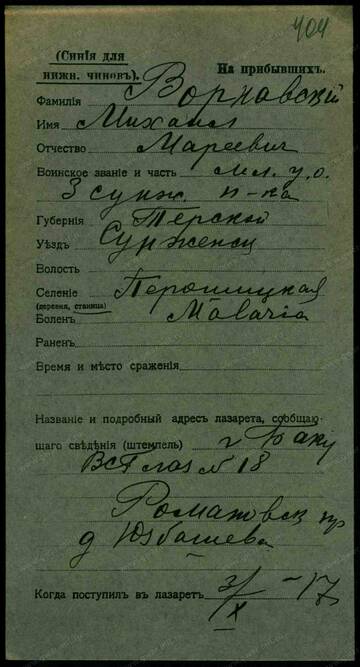 404
(Синія для
нижн. чиновъ).
На прибывшихъ.
Фамилія Ворнавский
Имя Михаил
Отчество Мареевич
Воинское званіе и часть мл. у.о.
3 сунж. п-ка
Губернія Терской
Уѣздъ Сунженск
Волость
Селеніе
(деревня, станица)
Боленъ Malaria
Раненъ
Время и мѣсто сраженія
Названіе и подробный адресъ лазарета, сообщаю-
щаго свѣдѣнія (штемпель) г Баку
ВСГ лаз № 18
Романовск пр
д Юзбашева
Когда поступил въ лазаретъ 3/IX -17